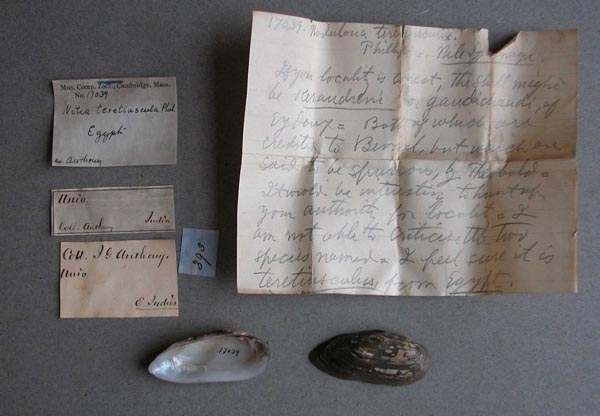 Mus. Comp. Zoöl., Cambridge, Mass.
No. 17039
Nitia teretiuscula Phil
Egypt
ex Anthony
Unio.
India
Coll. Anthony
Coll. J G Anthony.
Unio.
E Indies
393
17039. teretiuscula
Phillipi = Nile drainage.
If your localit is correct, the shell might
be Keraudreni or gaudichaudi, of
Eydoux = Both of which are
credited to Bengal, but which are
said to be spurious, by Theobald =
It would be interesting to hunt up
your authority for localit = I
am not able to criticise the two
species named = I feel sure it is
teretiusculus, from Egypt.
17039